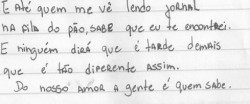 E Até quem me vê lendo jornal
na fila do pão, SABE que eu te encontrei.
E ninguém dirá que é tarde demais
que é tão diferente assim.
Do nosso amor a gente é quem sabe.